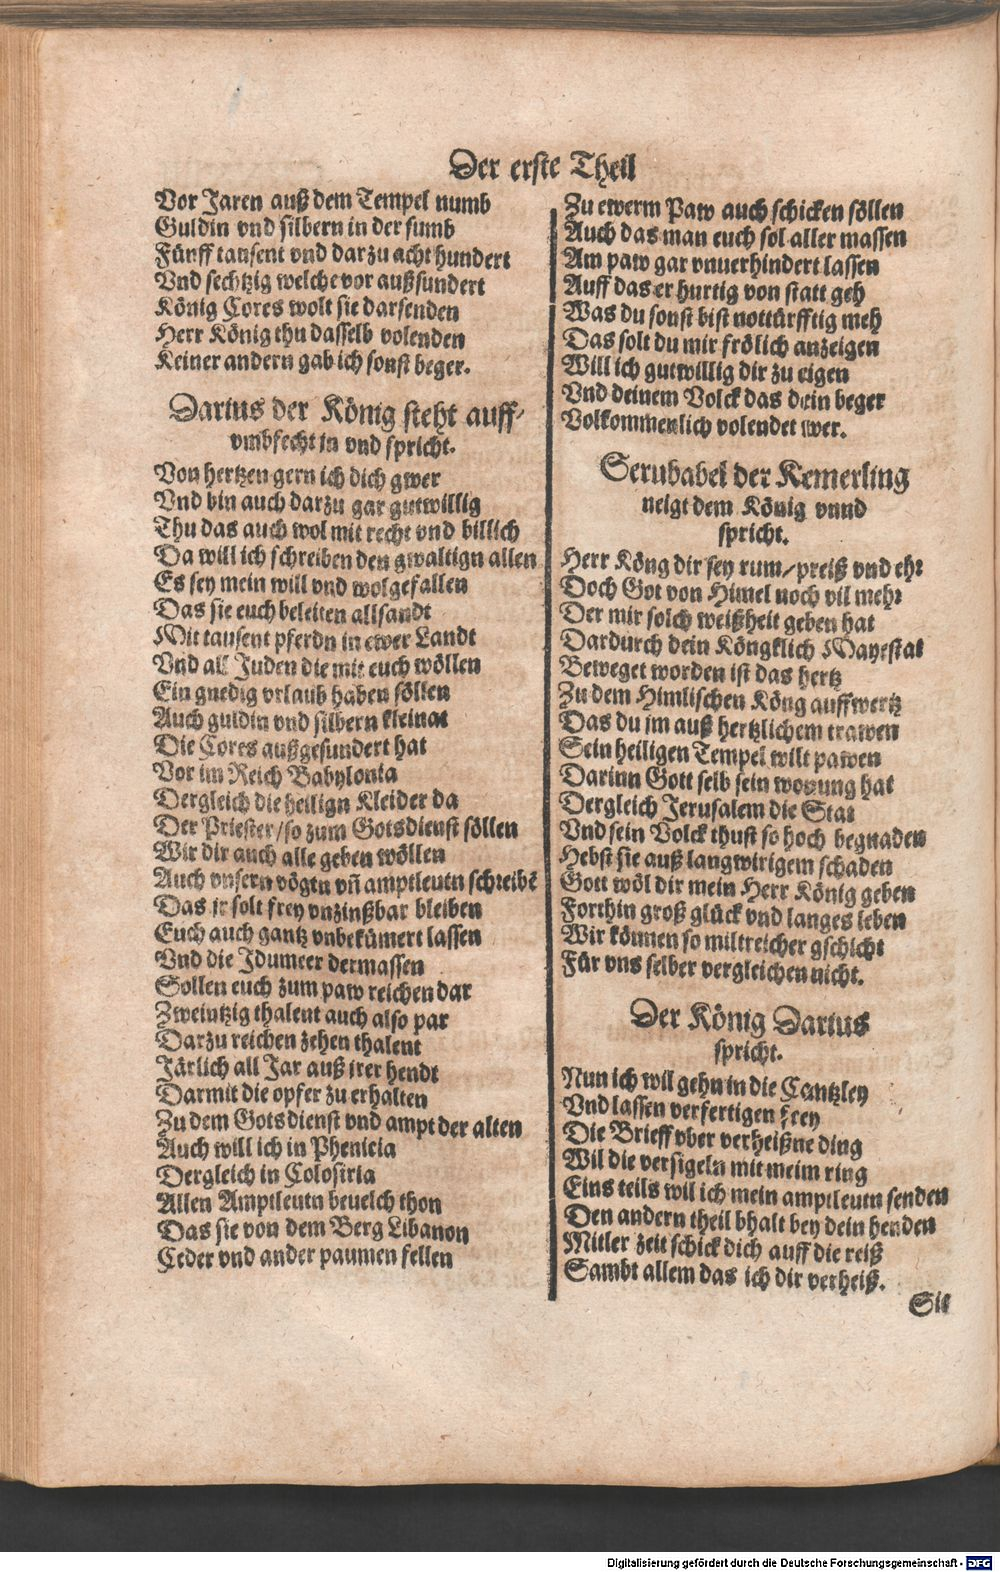 Der erste Theil
Vor Jaren auß dem Tempel numb
Guldin vnd silbern in der sumb
Fünff tausent vnd darzu acht hundert
Vnd sechtzig welche vor außsundert
König Cores wolt sie darsenden
Herr König thu dasselb volenden
Keiner andern gab ich sonst beger.
Darius der König steht auff/
vmbfecht in vnd spricht.
Von hertzen gern ich dich gwer
Vnd bin auch darzu gar gutwillig
Thu das auch wol mit recht vnd billich
Da will ich schreiben den gwaltign allen
Es sey mein will vnd wolgefallen
Das sie euch beleiten allsandt
Mit tausent pferdn in ewer Landt
Vnd all Juden die mit euch wöllen
Ein gnedig vrlaub haben söllen
Auch guldin vnd silbern kleinat
Die Cores außgesundert hat
Vor im Reich Babylonia
Dergleich die heilign Kleider da
Der Priester/so zum Gotsdienst söllen
Wir dir auch alle geben wöllen
Auch vnsern vögtn vñ amptleutn schreibē
Das ir solt frey vnzinßbar bleiben
Euch auch gantz vnbekümert lassen
Vnd die Idumeer dermassen
Sollen euch zum paw reichen dar
Zweintzig thalent auch also par
Darzu reichen zehen thalent
Järlich all Jar auß irer hendt
Darmit die opfer zu erhalten
Zu dem Gotsdienst vnd ampt der alten
Auch will ich in Phenicia
Dergleich in Colosiria
Allen Amptleutn beuelch thon
Das sie von dem Berg Libanon
Ceder vnd ander paumen fellen
Zu ewerm Paw auch schicken söllen
Auch das man euch sol aller massen
Am paw gar vnuerhindert lassen
Auff das er hurtig von statt geh
Was du sonst bist nottürfftig meh
Das solt du mir frölich anzeigen
Will ich gutwillig dir zu eigen
Vnd deinem Volck das dein beger
Volkommenlich volendet wer.
Serubabel der Kemerling
neigt dem König vnnd
spricht.
Herr Köng dir sey rum/preiß vnd ehr
Doch Got von Himel noch vil mehr
Der mir solch weißheit geben hat
Dardurch dein Köngklich Mayestat
Beweget worden ist das hertz
Zu dem Himlischen Köng auffwertz
Das du im auß hertzlichem trawen
Sein heiligen Tempel wilt pawen
Darinn Gott selb sein wonung hat
Dergleich Jerusalem die Stat
Vnd sein Volck thust so hoch begnaden
Hebst sie auß langwirigem schaden
Gott wöl dir mein Herr König geben
Forthin groß glück vnd langes leben
Wir können so miltreicher gschicht
Für vns selber vergleichen nicht.
Der König Darius
spricht.
Nun ich wil gehn in die Cantzley
Vnd lassen verfertigen frey
Die Brieff vber verheißne ding
Wil die versigeln mit meim ring
Eins teils wil ich mein amptleutn senden
Den andern theil bhalt bey dein henden
Mitler zeit schick dich auff die reiß
Sambt allem das ich dir verheiß.
Sie
Digitalisierung gefördert durch die Deutsche Forschungsgemeinschaft - DFG